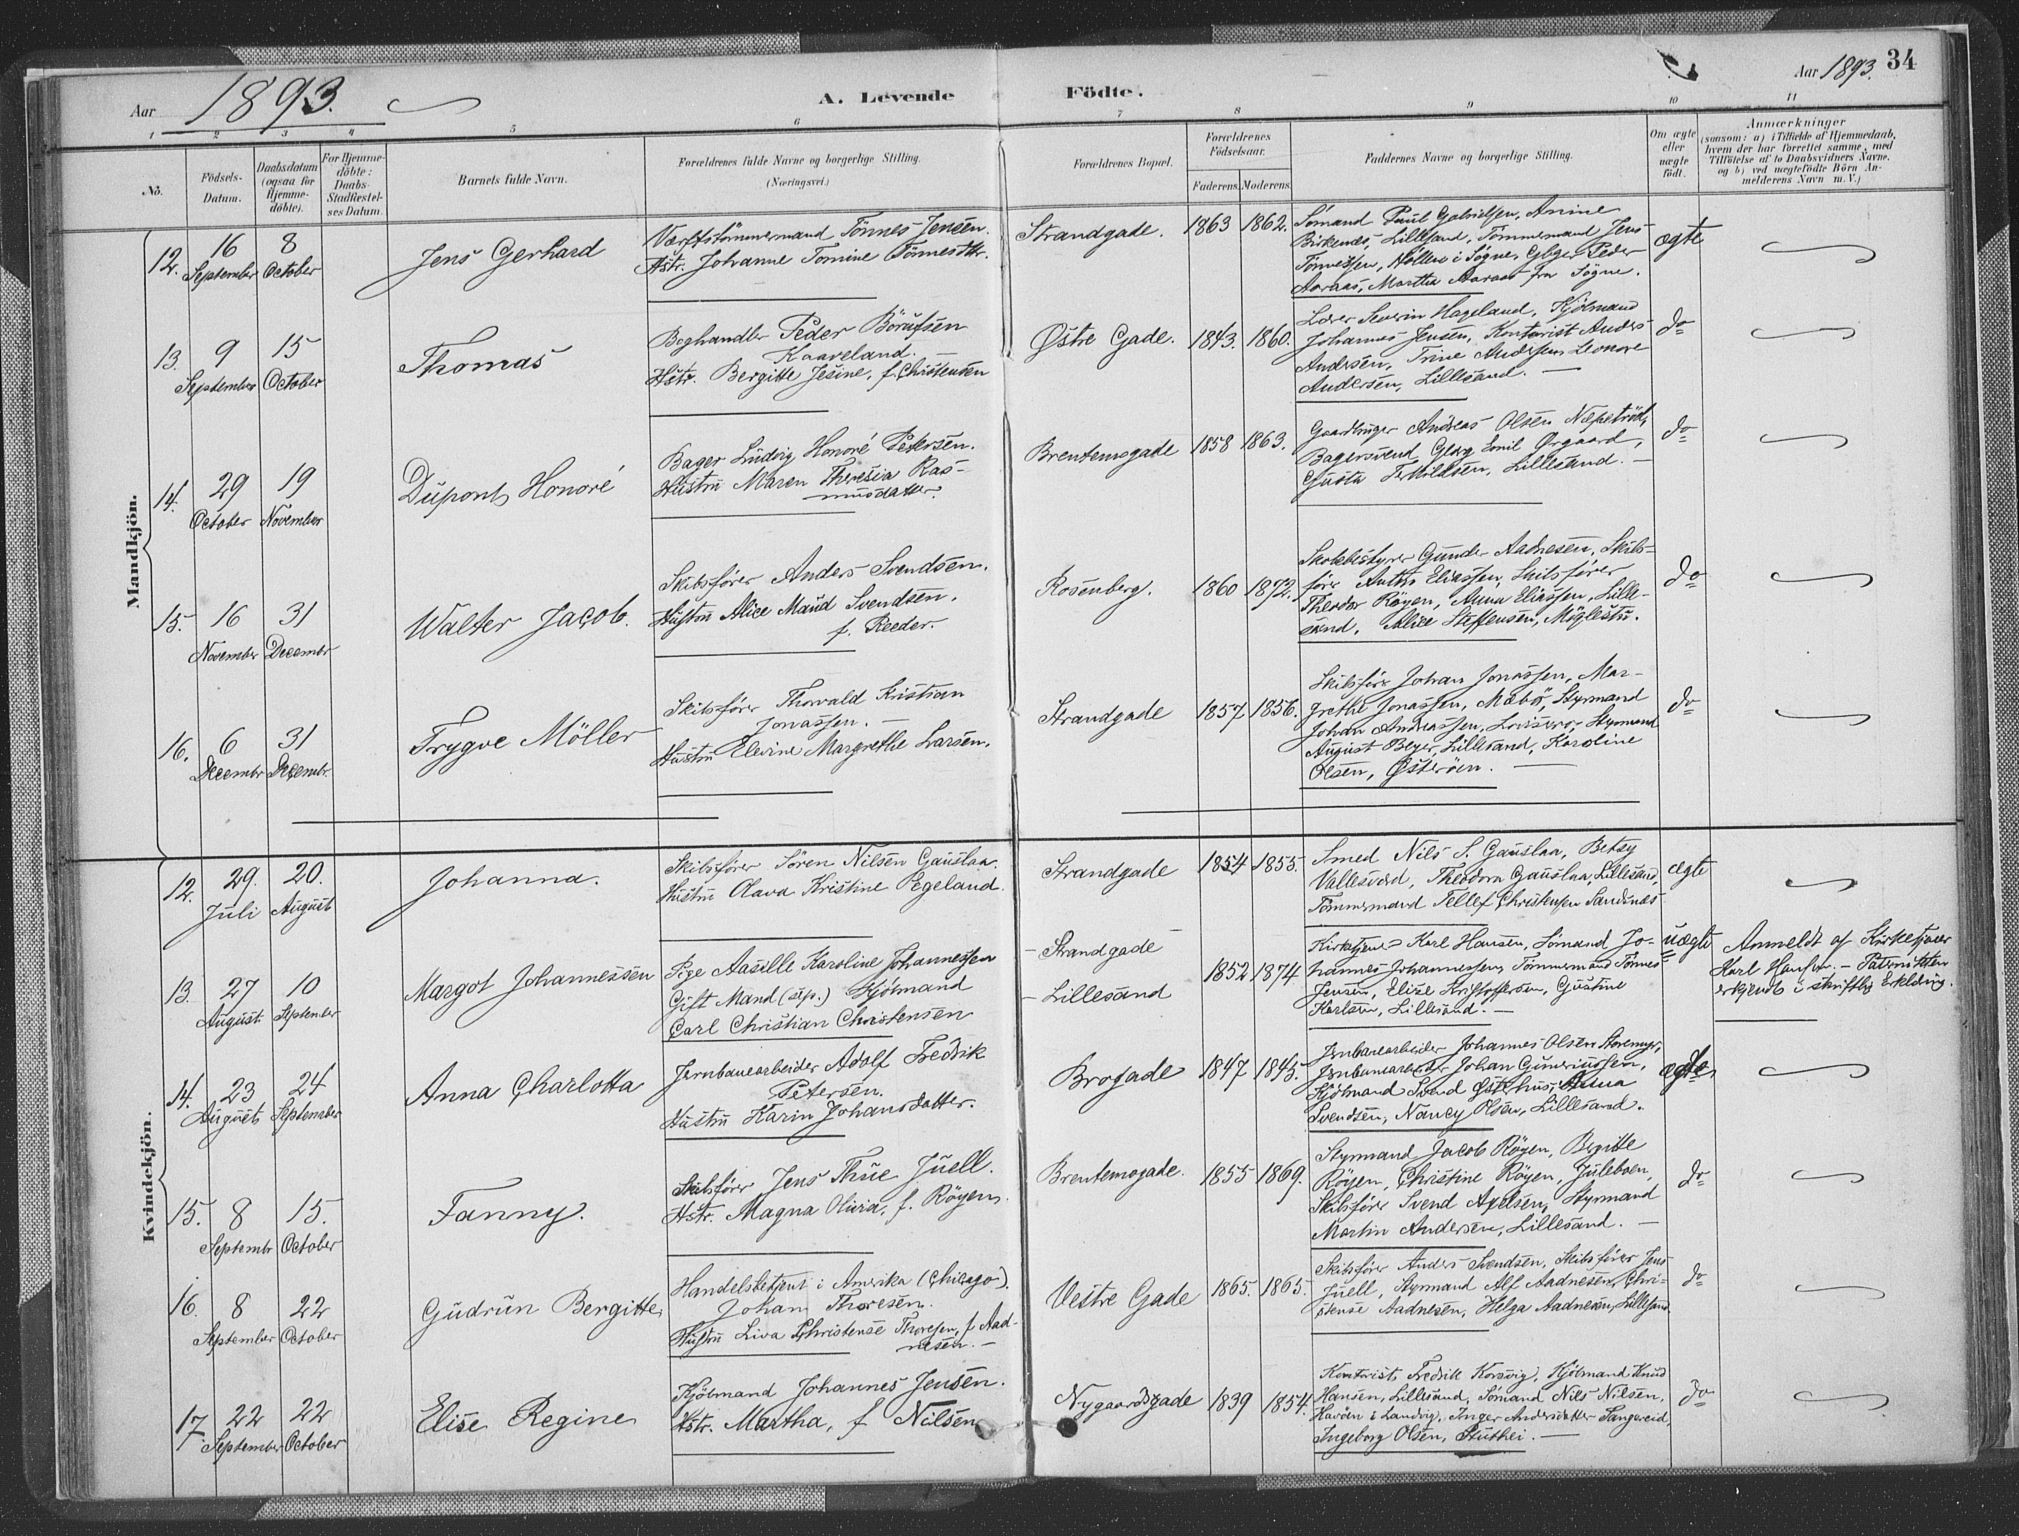 Aar 1893. A. Levende Födte. Aar 1893. 34
1 2 3 4 5 6 7 8 9 10 11
No.
Födsels-
Datum.
Daabsdatum
(ogsaa for
Hjemme-
döbte).
For Hjemme-
döbte:
Daabs-
Stadfæstel-
ses Datum.
Barnets fulde Navn.
Forældrenes fulde Navne og borgerlige Stilling.
(Næringsvei.)
Forældrenes Bopæl.
Forældrenes
Födselsaar.
Faderens. Moderens.
Faddernes Navne og borgerlige Stilling.
Om ægte
eller
uægte
født.
Anmærkninger
(saasom: a) i Tilfælde af Hjemmedaab,
hvem der har forrettet samme, med
Tilföielse af to Daabsvidners Navne,
og b) ved uægtefödte Börn An-
melderens Navn m. V.)
Mandkjön.
12.
16
September
8
October
Jens Gerhard
Værftstömmermand Tönnes Jensen.
Hstr. Johanne Tomine Tönnesdtr.
Strandgade.
1863 1862.
Sömand Paul Gabrielsen, Anine
Birkenes, Lillesand, Tömmermand Jens
Tönnessen, Sögne, Peder
Aaraas, Martha Aaraas fra Sögne.
ægte
13.
9
September
15
October
Thomas
Boghandler Peder Börufsen
Kaaveland.
Hstr. Bergitte Jesine, f. Christensen
Østre Gade.
1843. 1860.
Lærer Severin Hageland, Kjöbmand
Johannes Jensen, Kontorist Anders
Andersen, Trine Andersen, Leonore
Andersen, Lillesand.
do
14.
29
October
19
November
Dupont Honoré
Bager Ludvig Honoré Petersen.
Hustru Maren Theresia Ras-
musdatter.
Brentemogade
1858 1863.
Gaardbruger Andreas Olsen
Bagersvend Georg Emil Ørgaard,
Gusta Terkildsen, Lillesand.
do
15.
16
November
31
Decembr
Walter Jacob.
Skibsfører Anders Svendsen.
Hustru Alice Maud Svendsen,
f. Reeder.
Rosenberg.
1860 1872.
Skolebestyrer Gunder Aadnesen, Skibs-
före Anton Eliassen, Skibsfører
Theodor Røyen, Anna Eliassen, Lille-
sand, Alice Steffensen, Möglestu.
do
16.
6
Decembr
31
Decembr.
Trygve Möller
Skibsfører Thorvald Kristian
Jonassen.
Hustru Elevine Margrethe Larsen.
Strandgade
1857 1856.
Skibsföre Johan Jonassen, Mar-
grethe Jonassen, Styrmand
Johan Andreassen, Styrmand
August Beyer, Lillesand, Karoline
Olsen, Østeröen.
do
Kvindekjön.
12.
29.
Juli
20.
August
Johanna.
Skibsfører Sören Nilsen Gauslaa.
Hustru Olava Kristine Pegeland.
Strandgade
1854 1855.
Smed Nils S. Gauslaa, Betzy
Vallesværd, Theodora Gauslaa, Lillesand,
Tömmermand Tellef Christensen Sandnæs
ægte
13.
27
August.
10
September
Margot Johannessen
Pige Aasille Karoline Johannessen
Gift Mand (sep.) Kjöbmand
Carl Christian Christensen
Strandgade
Lillesand
1852 1874
Kirketjener Karl Hansen, Sömand Jo-
hannes Johannessen, Tömmermand Tönnes
Jensen, Elise Kristoffersen, Gustine
Karlsen, Lillesand.
uægte
Anmeldt af Kirketjener
Karl Hansen. - Paterniteten
erkjendt i skriftlig Erklæring.
14.
23
August
24
September
Anna Charlotta
Jernbanearbeider Adolf Fredrik
Petersen.
Hustru Karin Johansdatter.
Brogade
1847 1845.
Jernbanearbeider Johannes Olsen Storemyr,
Jernbanearbeider Johan Gunerinssen,
Kjöbmand Svend Østerhus, Anna
Svendsen, Nancy Olsen, Lillesand.
ægte
15.
8
Septembr
15.
October
Fanny.
Skibsfører Jens Thue Juell.
Hstr. Magna Oliva, f. Röyen.
Brentemogade.
1855 1869.
Styrmand Jacob Röyen, Birgitte
Röyen, Christine Röyen, Juleboen,
Skibsfører Svend Axelsen, Styrmand
Martin Andersen, Lillesand.
do
16.
8
September
22
October
Gudrun Bergitte
Handelsbetjent i Amerika (Chicago).
Johan Thoresen.
Hustru Liva Christense Thoresen, f. Aad-
nesen.
Vestre Gade
1865. 1865.
Skibsfører Anders Svendsen, Skibsfører Jens
Juell, Styrmand Alf Aadnesen, Chri-
stense Aadnesen, Helga Aadnesen, Lillesand
do
17.
22
September
22
October
Elise Regine
Kjöbmand Johannes Jensen.
Hstr. Martha, f Nilsen
Nygaardsgade
1839 1854.
Kontorist Fredrik Korsvig, Kjöbmand Knud
Hansen, Lillesand, Sömand Nils Nilsen,
Havöen i Landvig, Inger Andersdatter Tangereid,
Ingeborg Olsen, Stuthei.
do